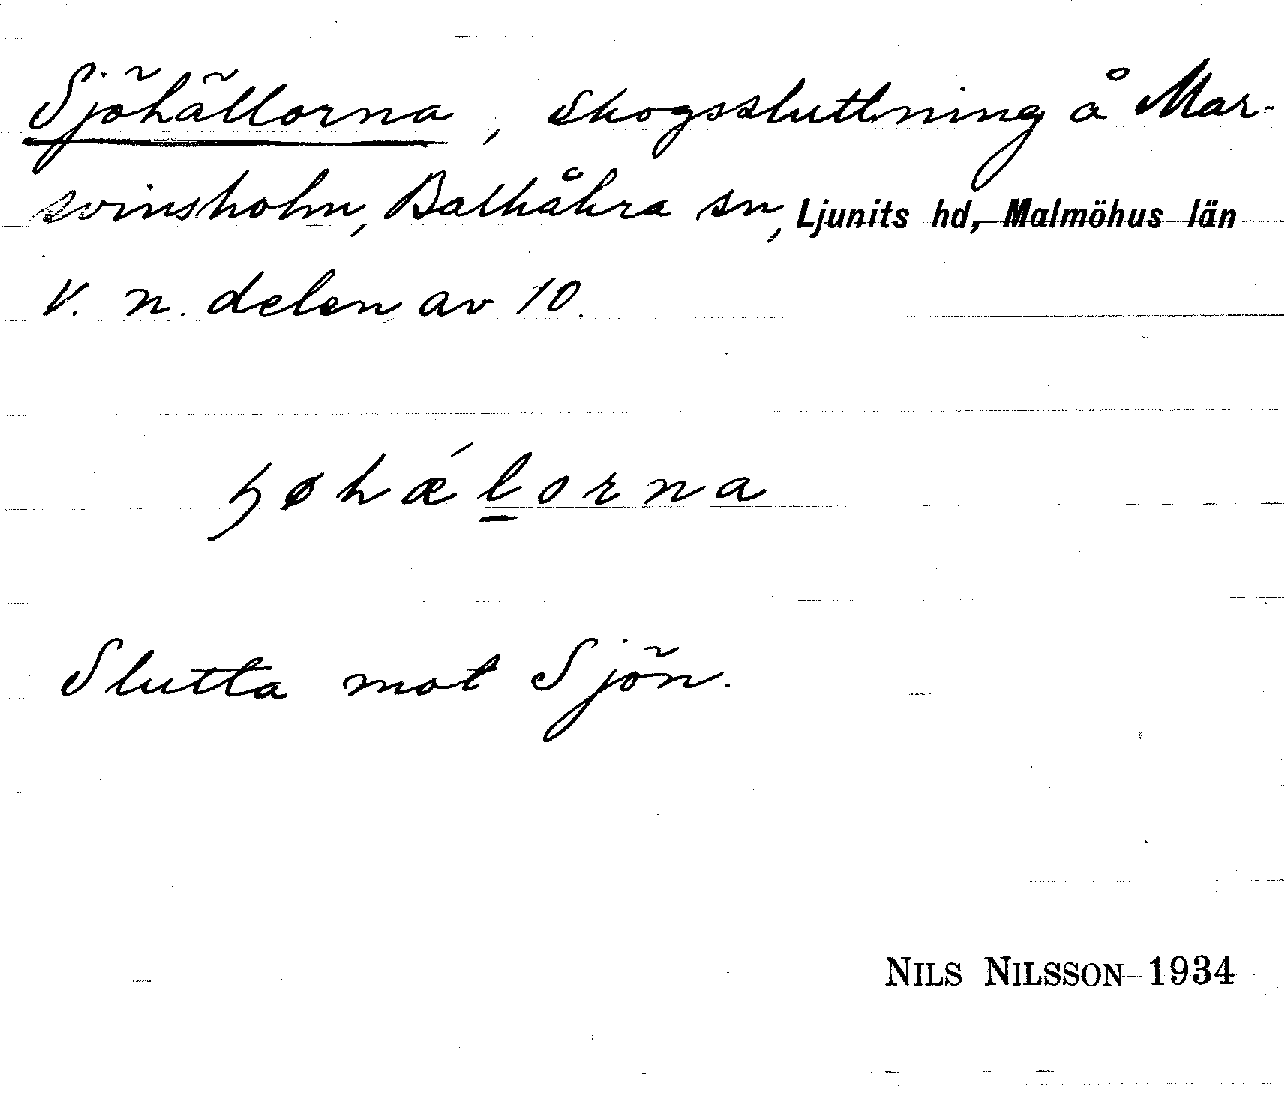 Sjöhällorna, skogssluttning å Mar-
svinsholm, Balkåkra sn, Ljunits hd, Malmöhus län
V. n. delen av 10.
ʖøhǽl̲orna
Slutta mot Sjön.
NILS NILSSON 1934